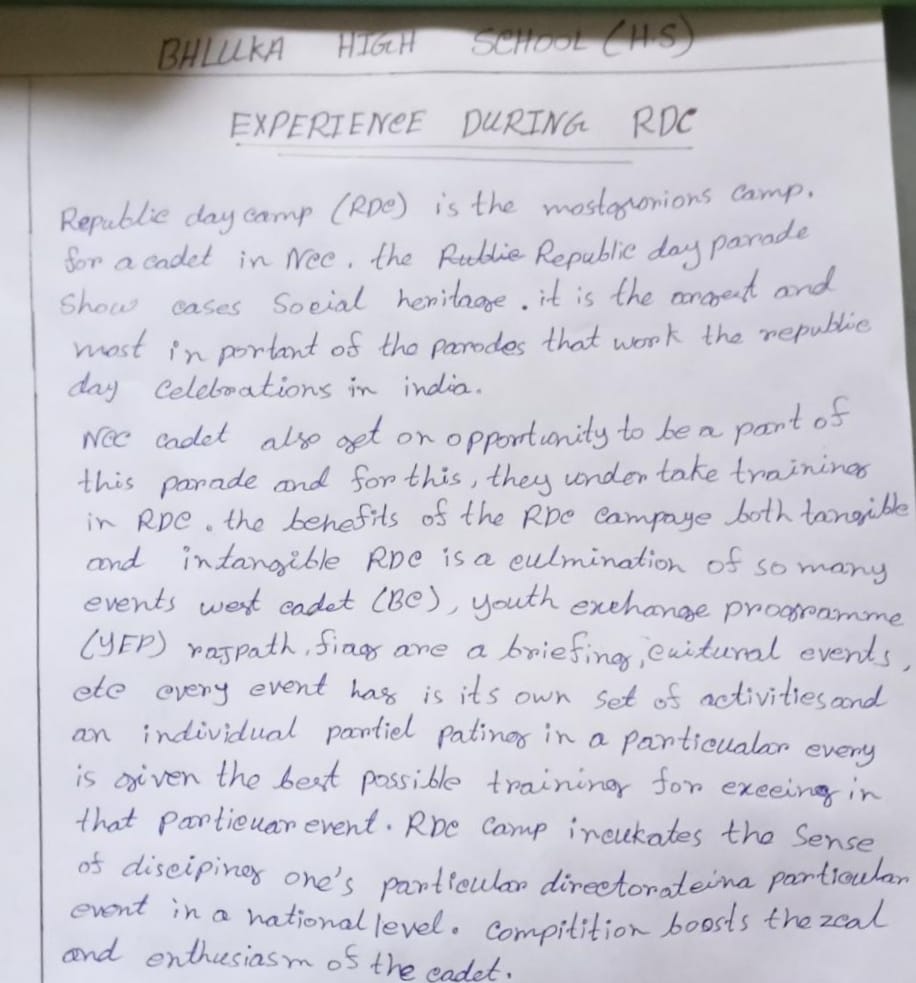 BHLUKA HIGH SCHOOL (H.S)
EXPERIENCE DURING RDC
Republic day camp (RDC) is the most camp.
for a cadet in Ncc. the Rublic Republic day parade
Show cases Social heritage. it is the and
most in portant of the parades that work the republic
day Celebrations in india.
NCC cadet also get on opportunity to be a part of
this parade and for this, they under take training
in RDC. the benefits of the RDC campaye both tangible
and intangible RDC is a culmination of so many
events west cadet (BC), youth exchange programme
(YEP) rajpath, fiag are a briefing, cuitural events,
etc every event has is its own set of activities and
an individual partiel pating in a particualar every
is given the best possible training for exceing in
that particuar event. RDC Camp incukates the Sense
of disciping one's particular directorateina particular
event in a national level. Compitition boosts the zeal
and enthusiasm of the cadet.